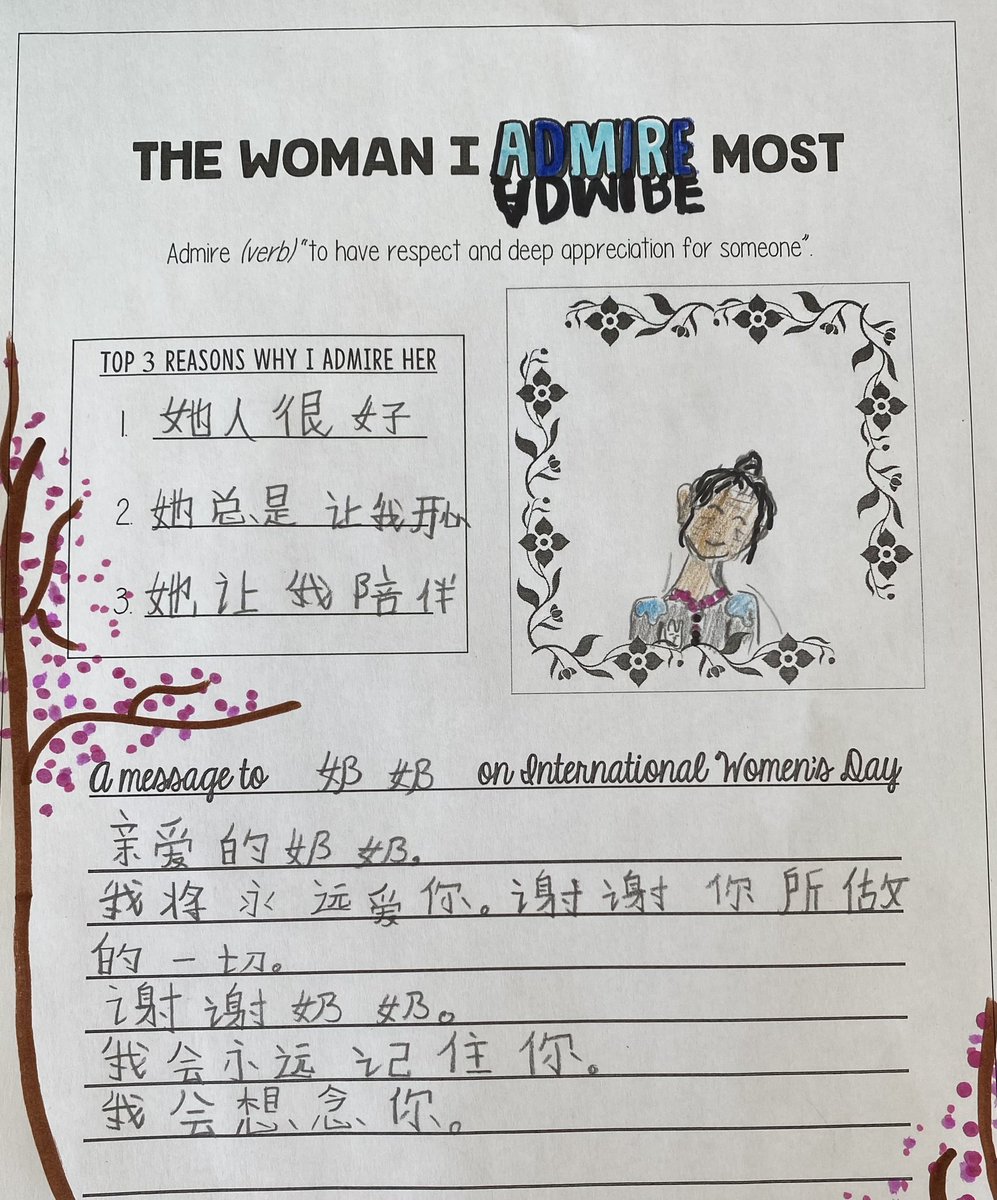 THE WOMAN I ADMIRE MOST
Admire (verb) "to have respect and deep appreciation for someone".
TOP 3 REASONS WHY I ADMIRE HER
1. 她人很好
2. 她总是让我开心
3. 她让我陪伴
A message to 奶奶 on International Women's Day
亲爱的奶奶。
我将永远爱你。谢谢你所做
的一切。
谢谢奶奶。
我会永远记住你。
我会想念你。